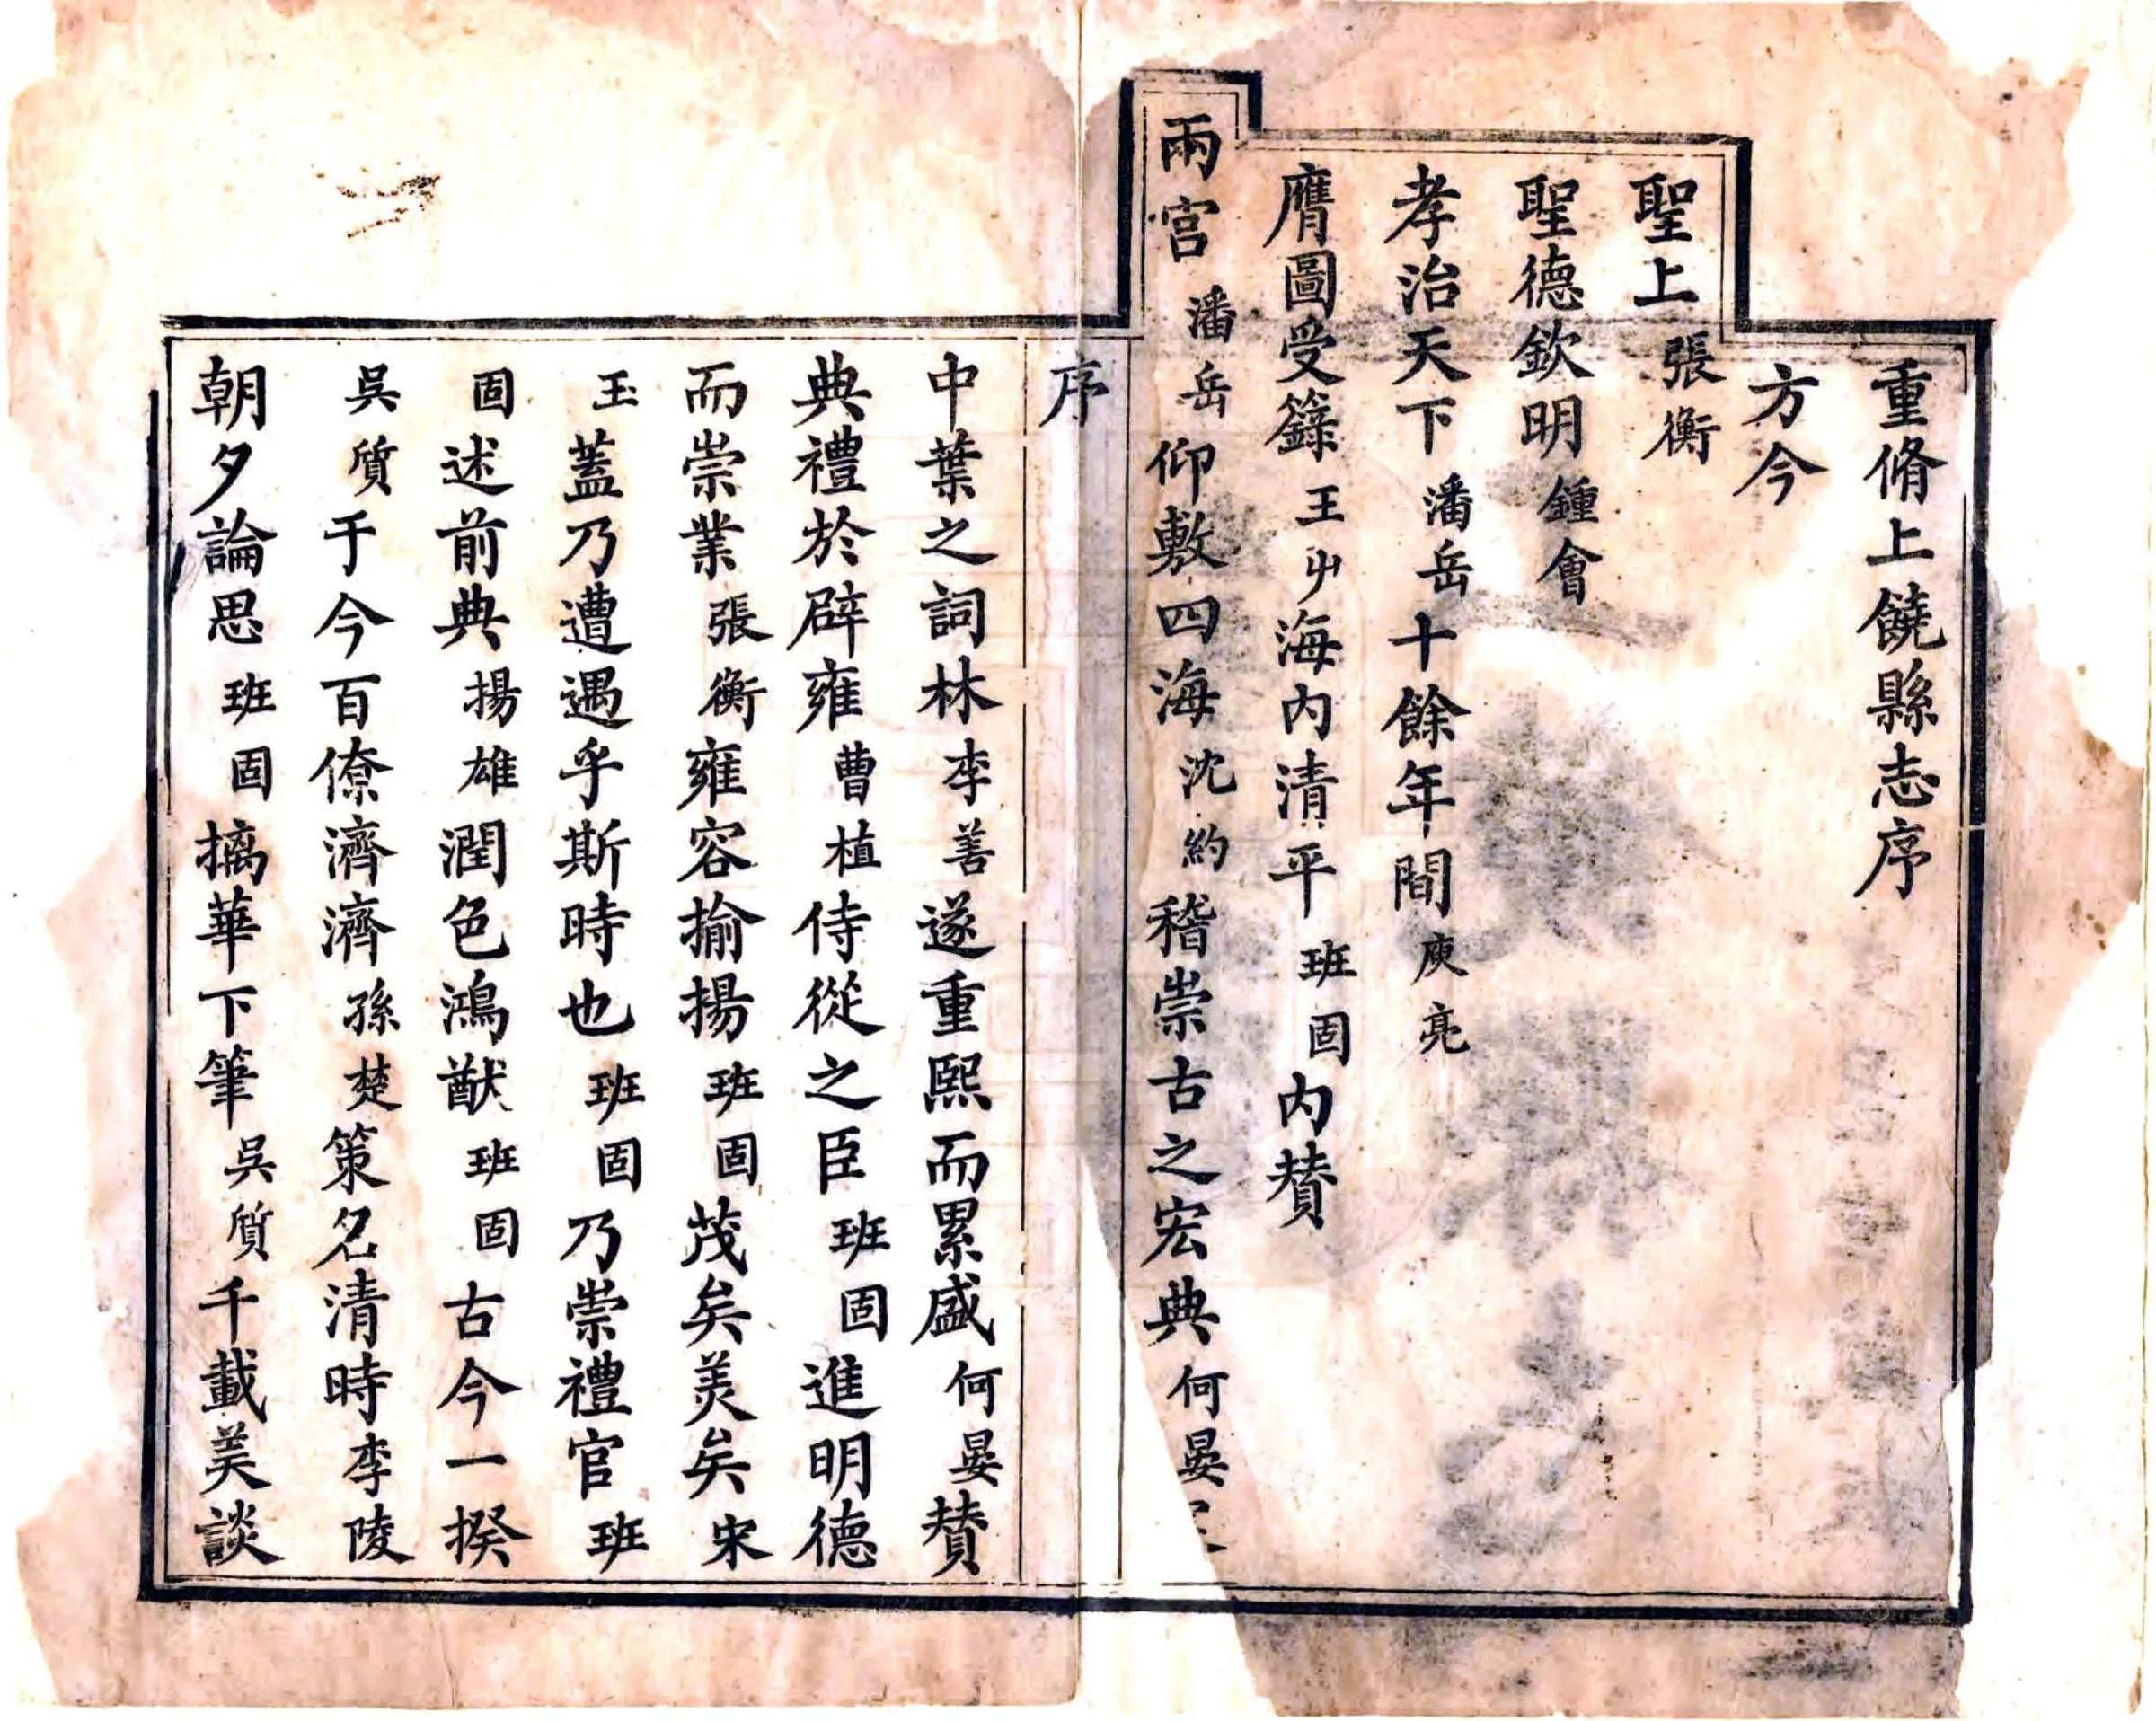 重脩上饒縣志序
方今
聖上張衡
聖德欽明鍾會
孝治天下潘岳十餘年間庾亮
膺圖受籙王屮海内清平班固内賛
兩宫潘岳仰敷四海沈約稽崇古之宏典何晏
序
中葉之詞林李善遂重熙而累盛何晏賛
典禮於辟雍曹植侍從之臣班固進明德
而崇業張衡雍容揄揚班固茂矣美矣宋
玉蓋乃遭遇乎斯時也班固乃崇禮官班
固述前典揚雄潤色鴻猷班固古今一揆
吳質于今百僚濟濟孫楚策名清時李陵
朝夕論思班固摛華下筆吳質千載美談